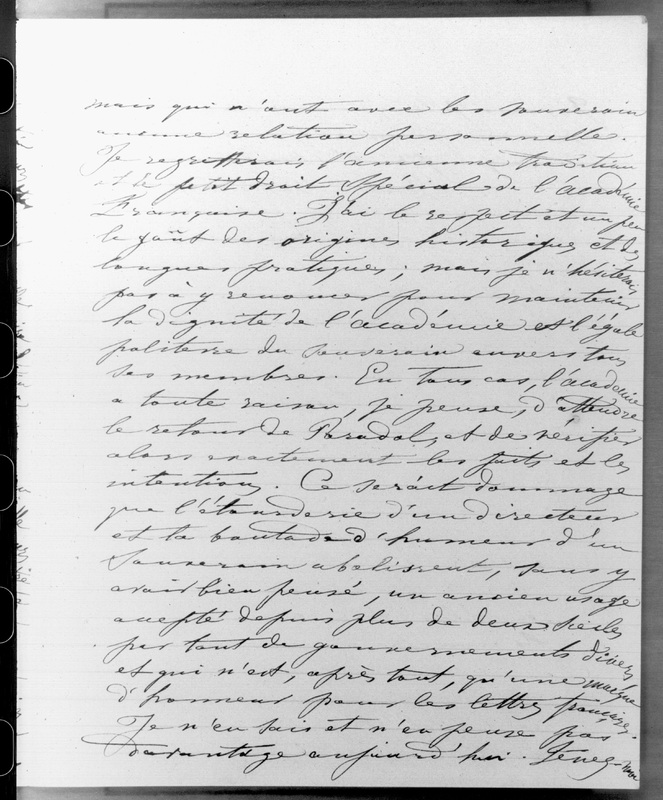 mais qui n'ont avec les souverain
aucune relation personnelle.
Je regretterais l'ancienne tradition
et le petit droit spécial de l'académie
Française. J'ai le respect et un peu
le goût des origines historiques et des
longues pratiques ; mais je n'hésiterais
pas à y renoncer pour maintenir
la dignité de l'académie et l'égale
politesse du souverain envers tous
ses membres. En tous cas, l'académie
a toute raison, je pense, d'attendre
le retour de Paradol, et de vérifier
alors exactement les faits et les
intentions. Ce serait dommage
que l'étourderie d'un directeur
et la boutade d'humeur d'un
Souverain abolissent, sans y
avoir bien pensé, un ancien usage
accepté depuis plus de deux siècles
par tant de gouvernements divers
et qui n'est, après tout, qu'une marque
d'honneur pour les lettres françaises.
Je n'en sais et n'en pense pas
davantage aujourd'hui. Tenez-moi